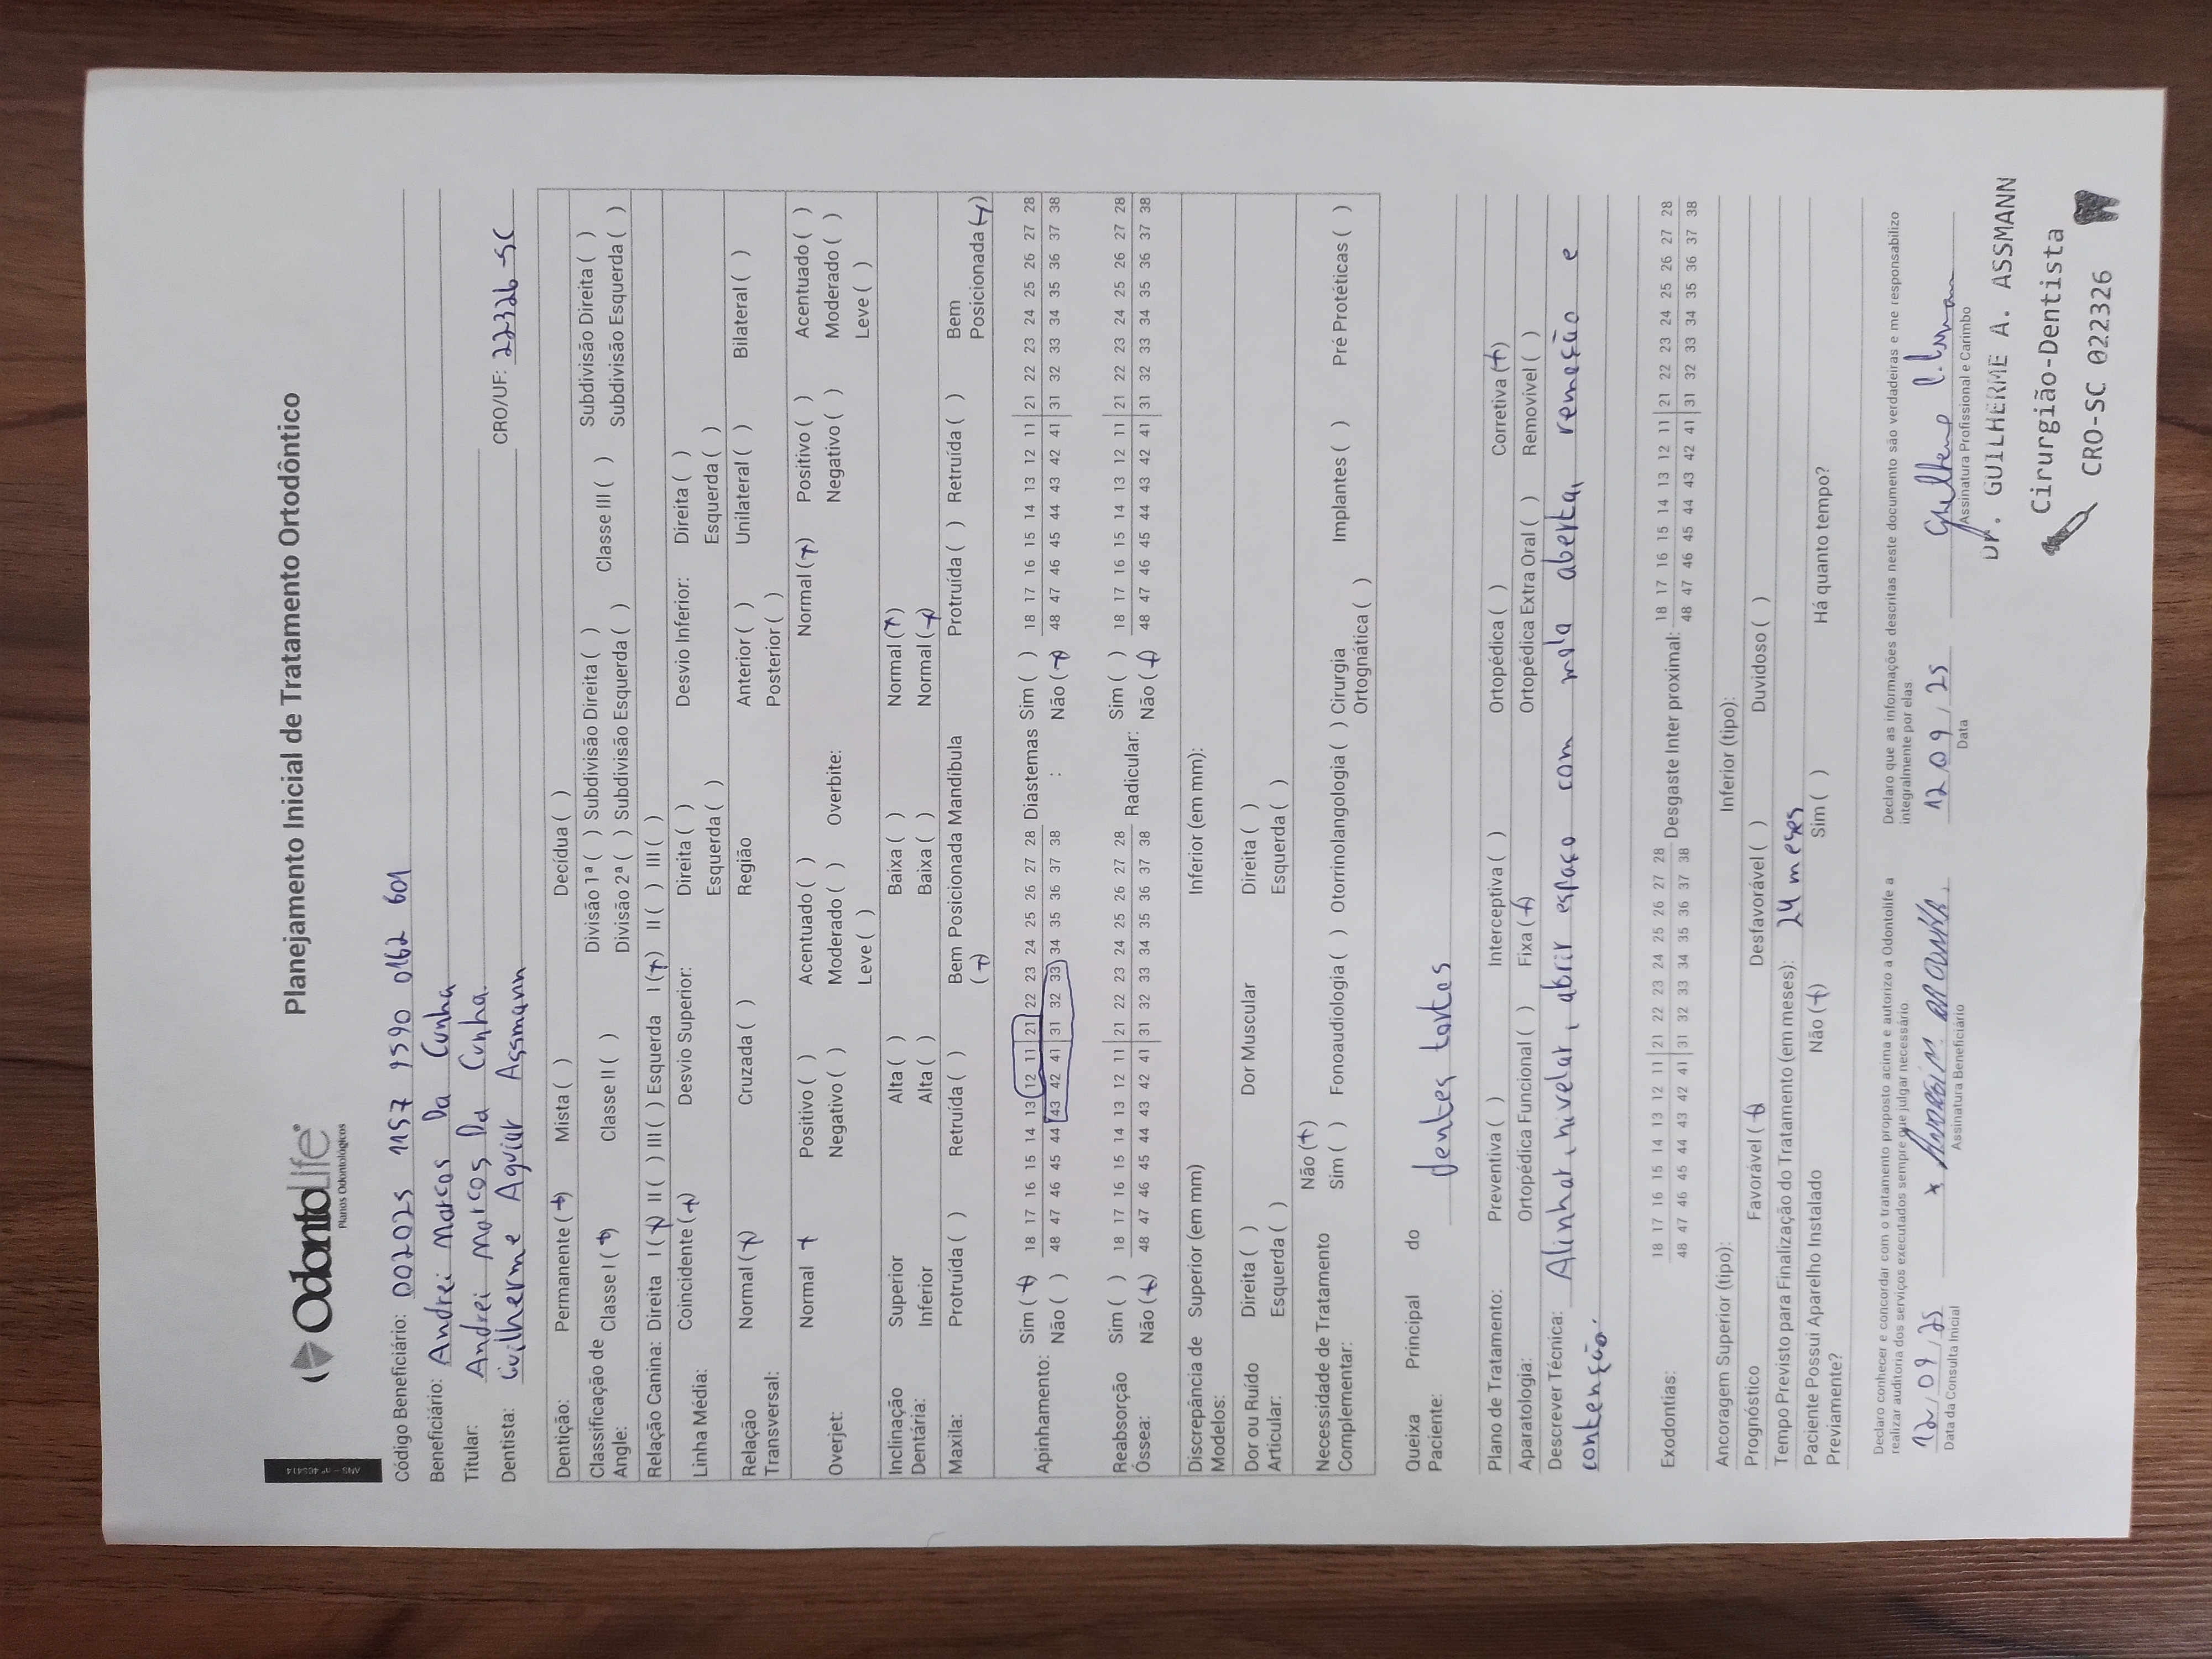 ANS - nº 465414
OdontoLife®
Planos Odontológicos
Planejamento Inicial de Tratamento Ortodôntico
Código Beneficiário: 002025 1157 1590 0162 601
Beneficiário: Andrei Marcos Da Cunha
Titular: Andrei Marcos Da Cunha
Dentista: Guilherme Aguiar Assmann CRO/UF: 22326-SC
Dentição: Permanente (+) Mista ( ) Decídua ( )
Classificação de Angle: Classe I (+) Classe II ( ) Divisão 1ª ( ) Subdivisão Direita ( ) Classe III ( ) Subdivisão Direita ( )
Divisão 2ª ( ) Subdivisão Esquerda ( ) Subdivisão Esquerda ( )
Relação Canina: Direita I (+) II ( ) III ( ) Esquerda I (+) II ( ) III ( )
Linha Média: Coincidente (+) Desvio Superior: Direita ( ) Desvio Inferior: Direita ( )
Esquerda ( ) Esquerda ( )
Relação Transversal: Normal (+) Cruzada ( ) Região Anterior ( ) Unilateral ( ) Bilateral ( )
Posterior ( )
Overjet: Normal + Positivo ( ) Acentuado ( ) Overbite: Normal (+) Positivo ( ) Acentuado ( )
Negativo ( ) Moderado ( ) Negativo ( ) Moderado ( )
Leve ( ) Leve ( )
Inclinação Superior Alta ( ) Baixa ( ) Normal (+)
Dentária: Inferior Alta ( ) Baixa ( ) Normal (+)
Maxila: Protruída ( ) Retruída ( ) Bem Posicionada (+) Mandíbula Protruída ( ) Retruída ( ) Bem Posicionada (+)
Apinhamento: Sim (+) 18 17 16 15 14 13 12 11 21 22 23 24 25 26 27 28 Diastemas : Sim ( ) 18 17 16 15 14 13 12 11 21 22 23 24 25 26 27 28
Não ( ) 48 47 46 45 44 43 42 41 31 32 33 34 35 36 37 38 Não (+) 48 47 46 45 44 43 42 41 31 32 33 34 35 36 37 38
Reabsorção Óssea: Sim ( ) 18 17 16 15 14 13 12 11 21 22 23 24 25 26 27 28 Radicular: Sim ( ) 18 17 16 15 14 13 12 11 21 22 23 24 25 26 27 28
Não (+) 48 47 46 45 44 43 42 41 31 32 33 34 35 36 37 38 Não (+) 48 47 46 45 44 43 42 41 31 32 33 34 35 36 37 38
Discrepância de Modelos: Superior (em mm) Inferior (em mm):
Dor ou Ruído Articular: Direita ( ) Dor Muscular Direita ( )
Esquerda ( ) Esquerda ( )
Necessidade de Tratamento Complementar: Não (+)
Sim ( ) Fonoaudiologia ( ) Otorrinolangologia ( ) Cirurgia Ortognática ( ) Implantes ( ) Pré Protéticas ( )
Queixa Principal do Paciente: dentes tortos
Plano de Tratamento: Preventiva ( ) Interceptiva ( ) Ortopédica ( ) Corretiva (+)
Aparatologia: Ortopédica Funcional ( ) Fixa (+) Ortopédica Extra Oral ( ) Removível ( )
Descrever Técnica: Alinhar, nivelar, abrir espaço com mola aberta, remoção e
contenção.
Exodontias: 18 17 16 15 14 13 12 11 21 22 23 24 25 26 27 28 Desgaste Inter proximal: 18 17 16 15 14 13 12 11 21 22 23 24 25 26 27 28
48 47 46 45 44 43 42 41 31 32 33 34 35 36 37 38 48 47 46 45 44 43 42 41 31 32 33 34 35 36 37 38
Ancoragem Superior (tipo): Inferior (tipo):
Prognóstico Favorável (+) Desfavorável ( ) Duvidoso ( )
Tempo Previsto para Finalização do Tratamento (em meses): 24 meses
Paciente Possui Aparelho Instalado Previamente? Não (+) Sim ( ) Há quanto tempo?
Declaro conhecer e concordar com o tratamento proposto acima e autorizo a Odontolife a
realizar auditoria dos serviços executados sempre que julgar necessário.
Declaro que as informações descritas neste documento são verdadeiras e me responsabilizo
integralmente por elas.
12/09/25
Data da Consulta Inicial
Assinatura Beneficiário
12/09/25
Data
Assinatura Profissional e Carimbo
Dr. GUILHERME A. ASSMANN
Cirurgião-Dentista
CRO-SC 022326